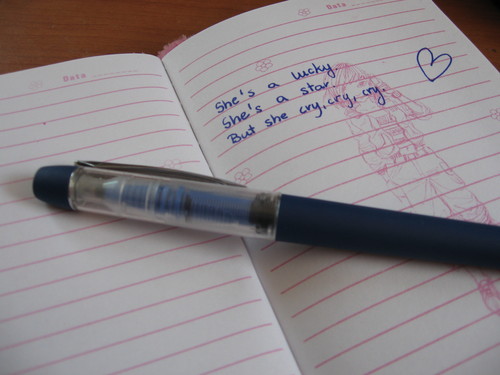 Data
Data
She's a lucky.
She's a star.
But she cry, cry, cry.